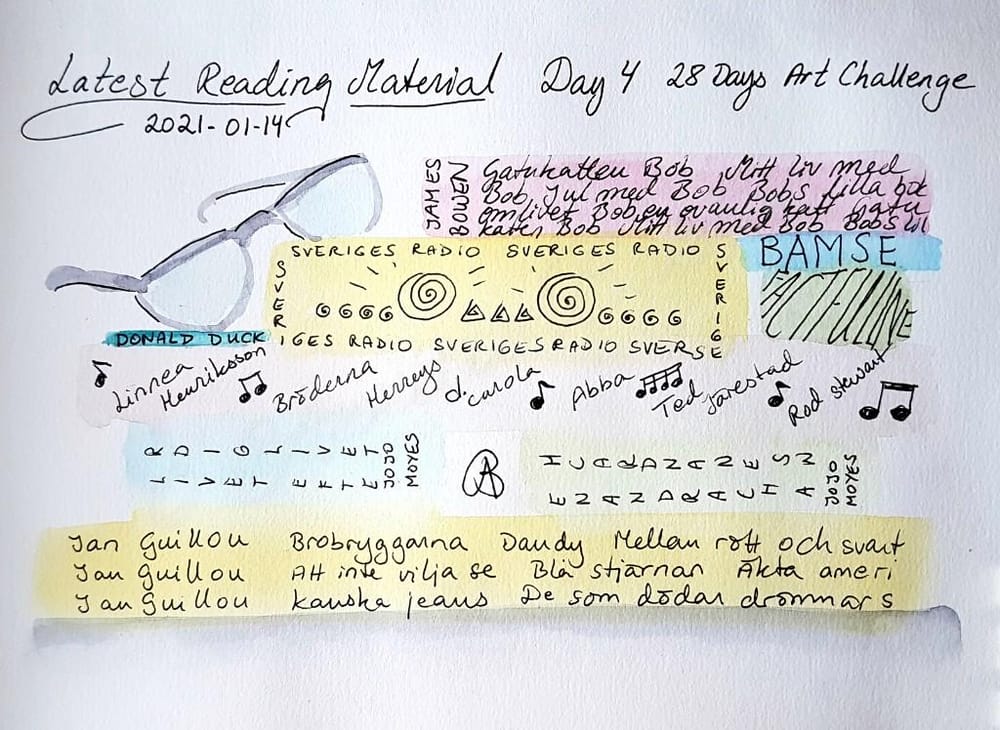 Latest Reading Material Day 4 28 Days Art Challenge
2021-01-14
JAMES
BOWEN
Gatukatten Bob Mitt liv med
Bob Jul med Bob Bobs lilla bok
om livet Bob en ovanlig katt Gatu
katten Bob Mitt liv med Bob Bobs lil
BAMSE
SVERIGES RADIO SVERIGES RADIO
SVER
SVERIGE
IGES RADIO SVERIGES RADIO SVERSE
DONALD DUCK
Linnea
Henriksson
Bröderna
Herreys
d.
carola
Abba
Ted
Jarestad
Rod stewart
R DIG LIVET
LIVET EFTE
JOJO
MOYES
JOJO
MOYES
Jan Guillou Brobryggarna Dandy Mellan rött och svart
Jan Guillou Att inte vilja se Blå stjärnan Äkta ameri
Jan Guillou kanska jeans De som dödar drömmar s